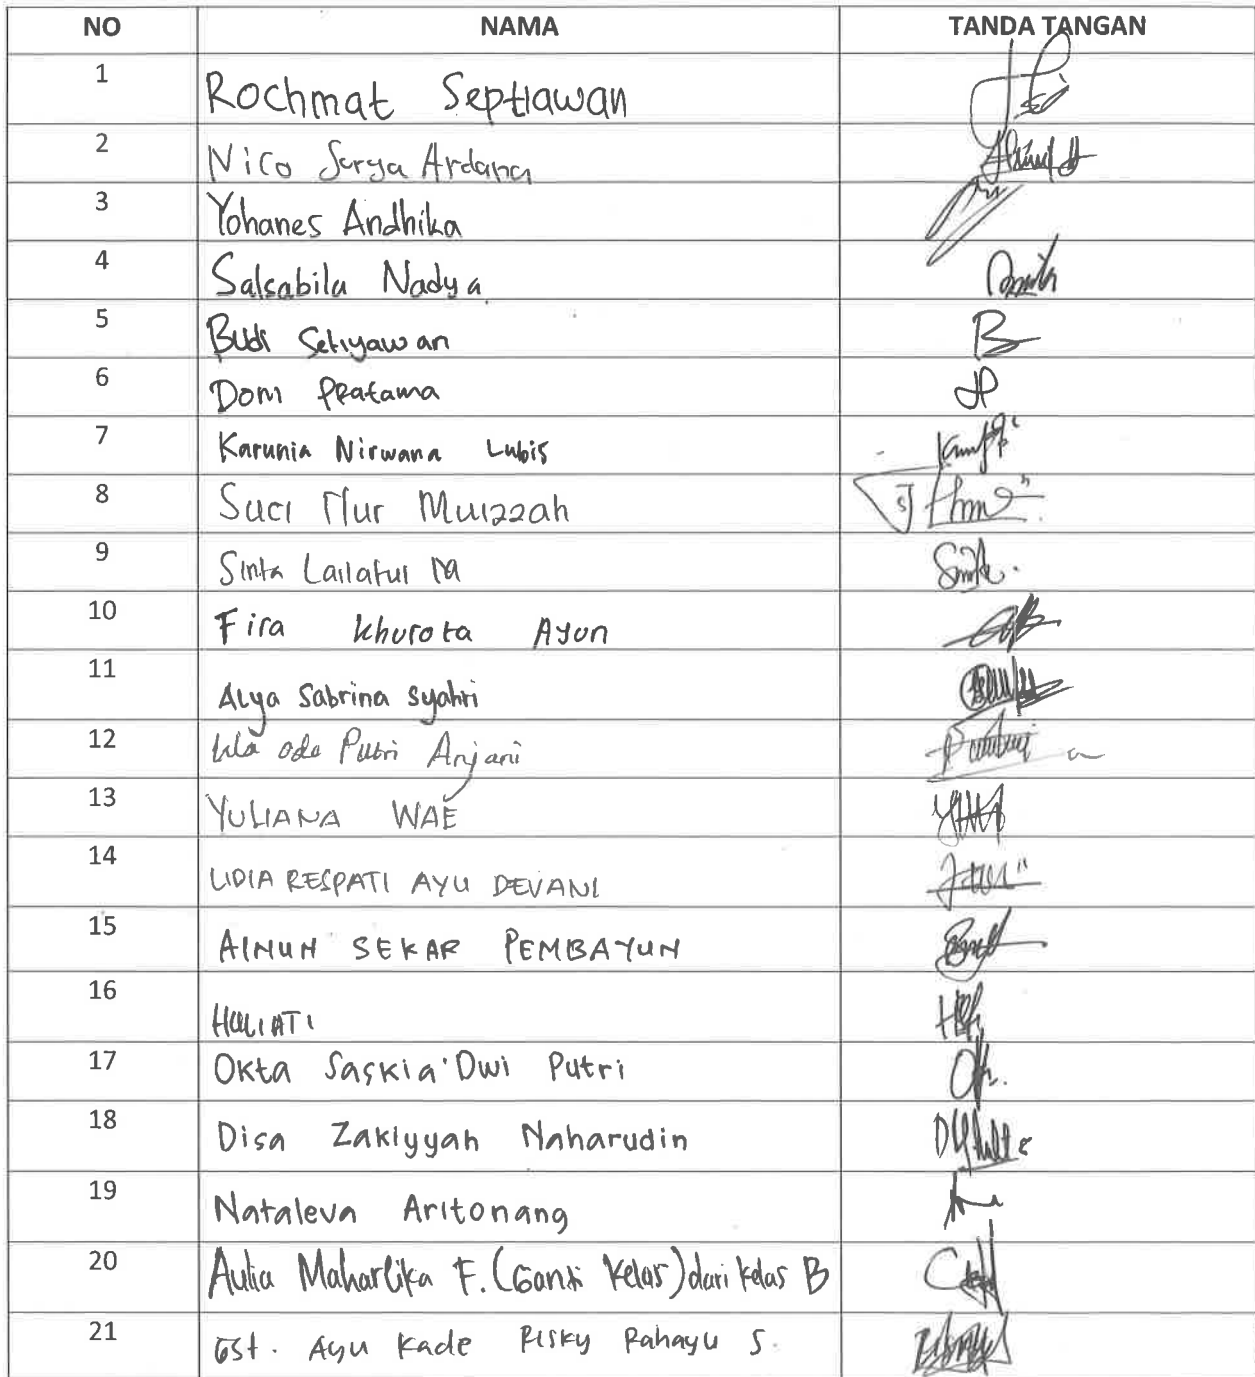 NO NAMA TANDA TANGAN
1 Rochmat Septiawan
2 Nico Surya Ardana
3 Yohanes Andhika
4 Salsabila Nadya
5 Budi Setiyawan
6 Doni Pratama
7 Karunia Nirwana Lubis
8 Suci Nur Muizzah
9 Sinta Lailatul M
10 Fira Khurota Ayun
11 Alya Sabrina Syahri
12 Wa ode Putri Anjani
13 YULIANA WAE
14 LIDIA RESPATI AYU DEVANI
15 AINUN SEKAR PEMBAYUN
16 HULIATI
17 Okta Saskia Dwi Putri
18 Disa Zakiyyah Naharudin
19 Nataleva Aritonang
20 Aulia Maharlika F. (Ganti Kelas) dari kelas B
21 Gst. Ayu Kade Risky Rahayu S.